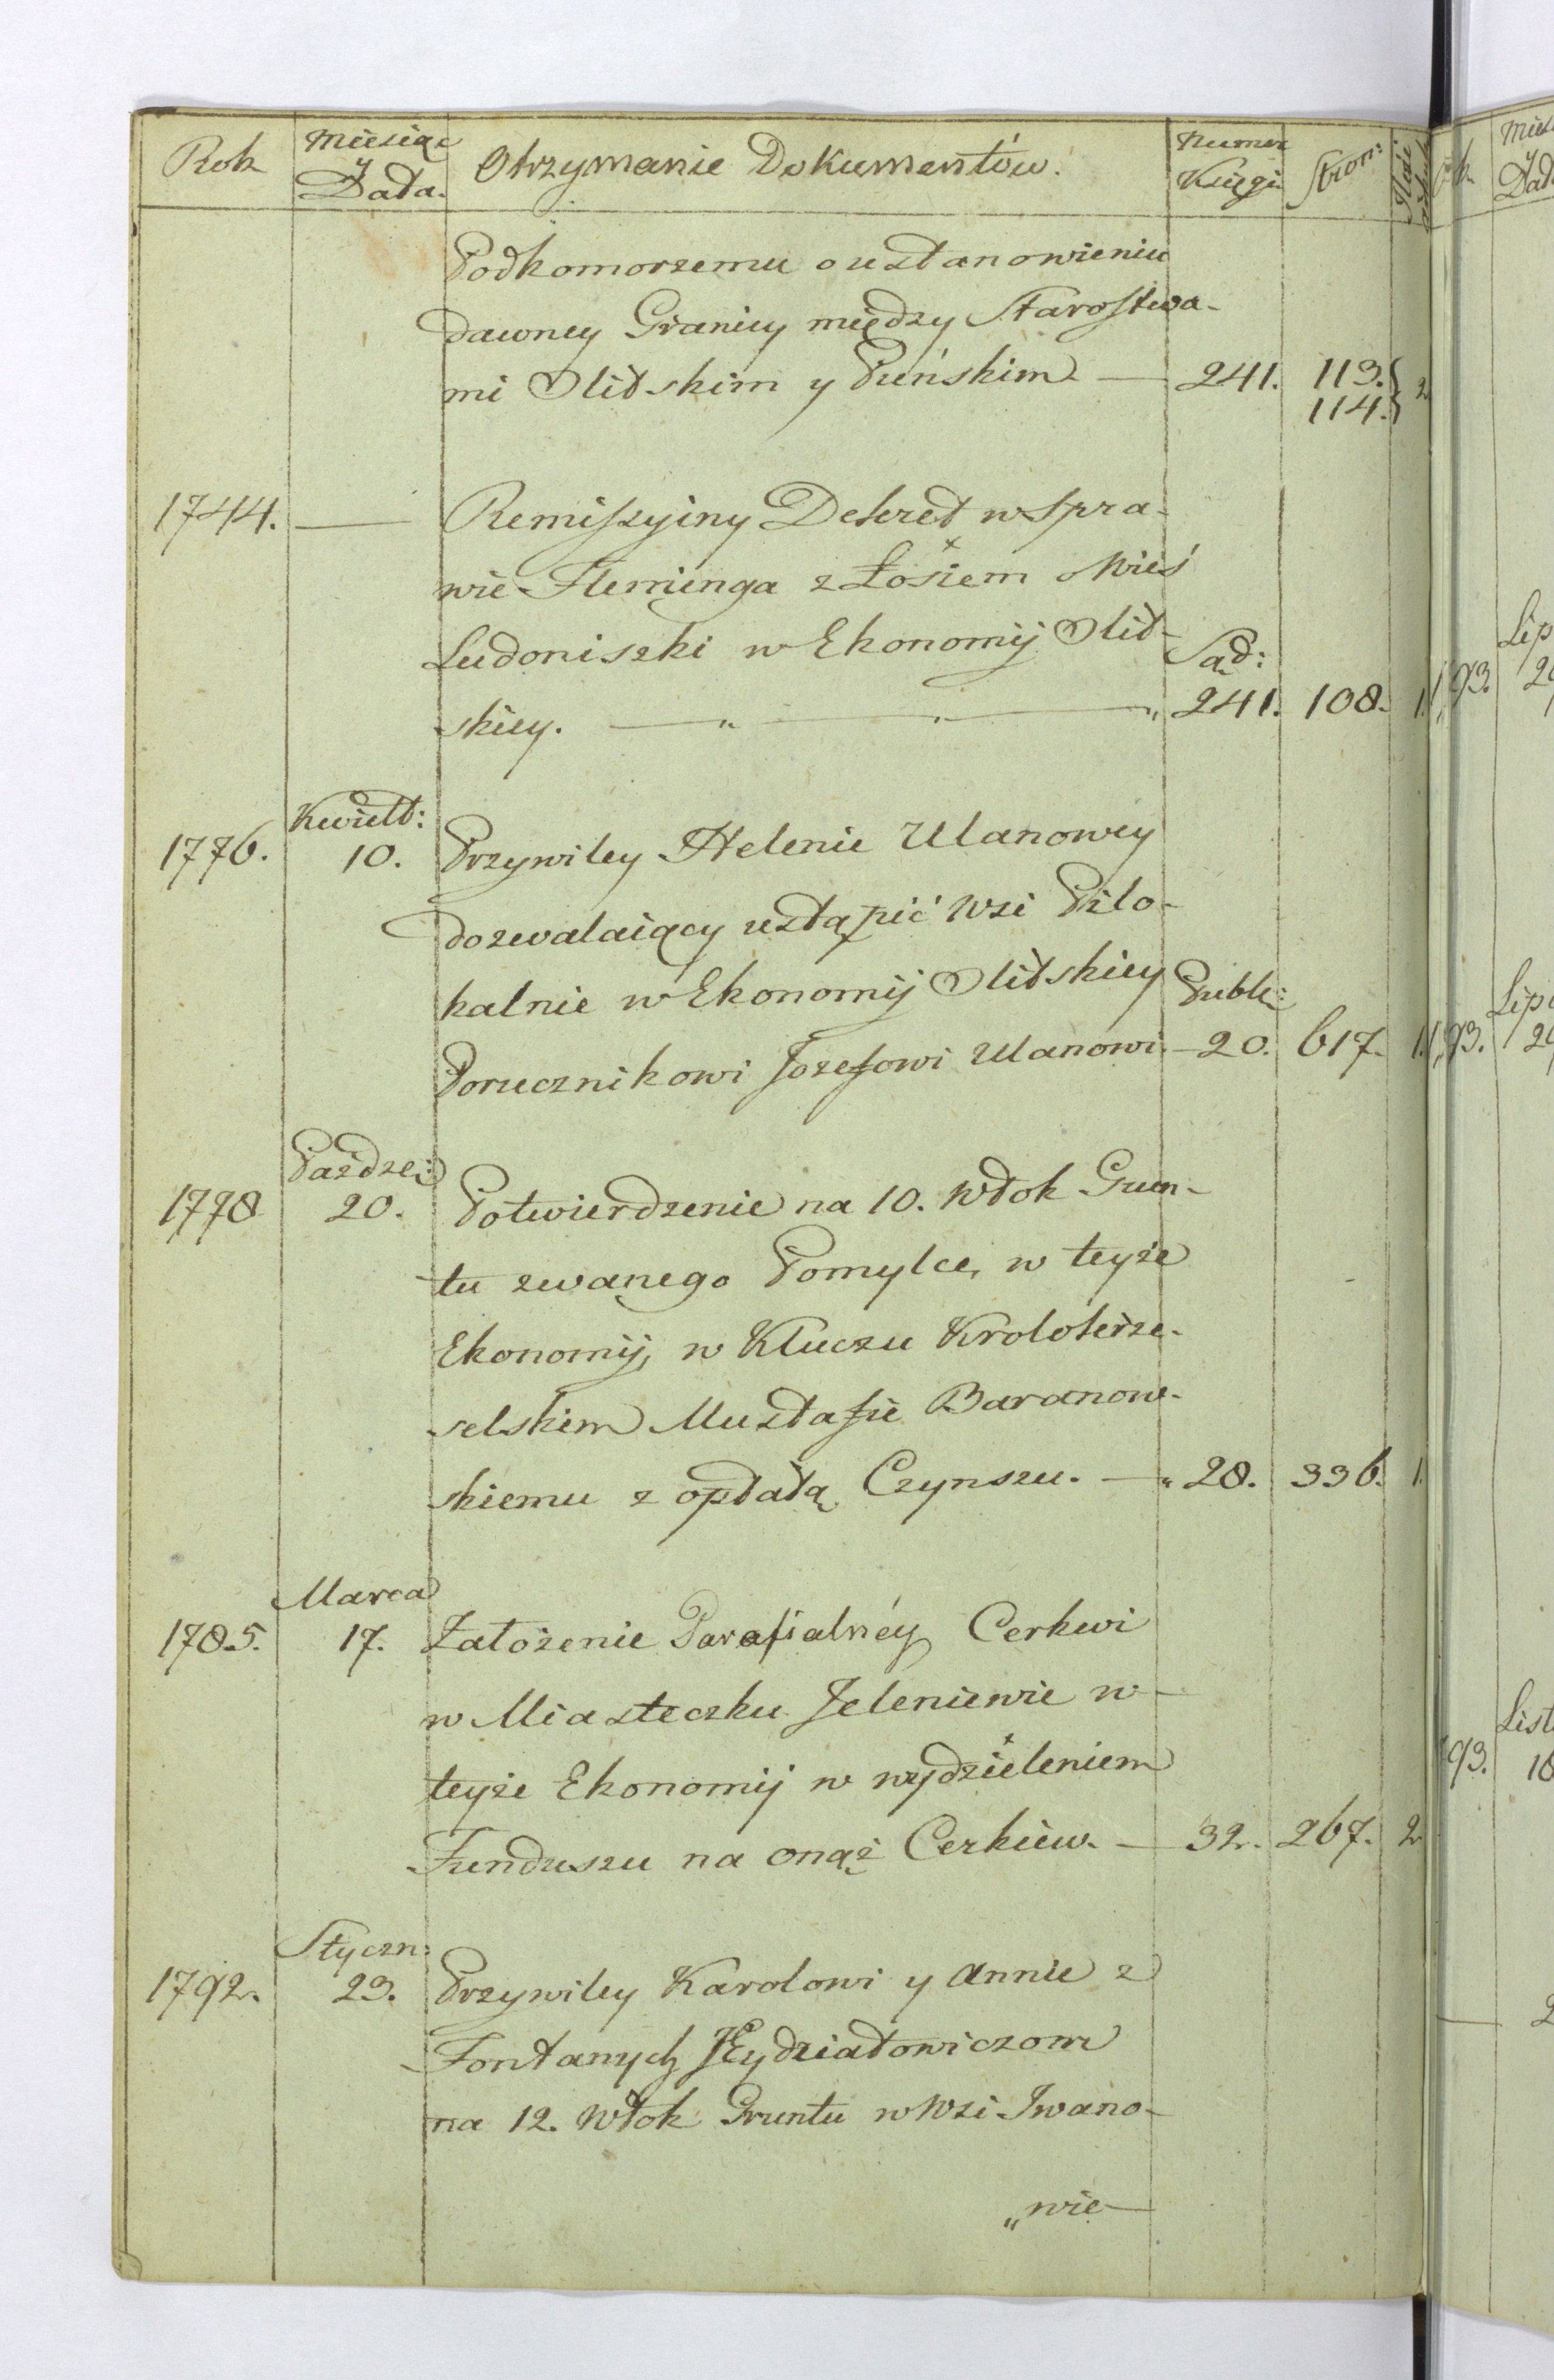 Rok Miesiąc y Data. Otrzymanie Dokumentów. Numer Księgi Stron:
Podkomorzemu o ustanowieniu
dawney Granicy między Starostwa-
mi Olitskim y Puńskim — 241. 113. 2
114.
1744. — Remissyiny Dekret w Spra-
wie Fleminga z Łosiem o Wieś
Ludoniszki w Ekonomij Olit- Sąd:
skiey. — 241. 108. 1.
Kwiett:
1776. 10. Przywiley Helenie Ulanowey
dozwalaiący ustąpić Wsi Piło-
kalnie w Ekonomij Olitskiey Publ:
Porucznikowi Jozefowi Ulanowi — 20. 617. 1.
Paździe:
1778 20. Potwierdzenie na 10. Włok Grun-
tu zwanego Pomylce, w teyże
Ekonomij, w Kluczu Krolokrze-
selskim Mustafie Baranow-
skiemu z opłatą Czynszu. — 28. 336. 1.
Marca
1785. 17. Założenie Parafialnéy Cerkwi
w Miasteczku Jeleniewie w
teyże Ekonomij w wydzieleniem
Funduszu na onąż Cerkiew. — 32. 267. 2
Styczn:
1792. 23. Przywiley Karolowi y Annie z
Fontanych Eydziatowiczom
na 12. Włok Gruntu w Wsi Iwano-
„wie
Lip
93.
Lip
93.
List
93. 18